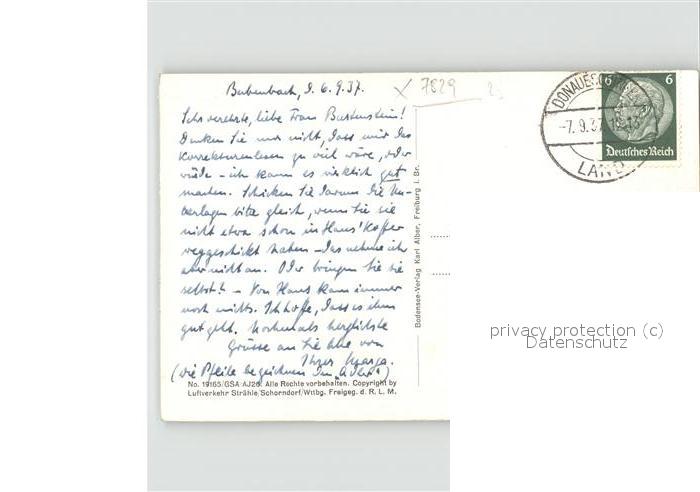 Bubenbach, d. 6.9.37.
7829
Sehr verehrte, liebe Frau Burtenstein!
Denken Sie nur nicht, dass mir das
Korrekturenlesen zu viel wäre, oder
würde - ich kann es wirklich gut
machen. Schicken Sie darum die Un-
terlagen bitte gleich, wenn Sie sie
nicht etwa schon in Haus' Koffer
weggeschickt haben - das nehme ich
aber nicht an. Oder bringen Sie sie
selbst! - Von Hans kam immer
noch nichts. Ich hoffe, dass es ihm
gut geht. Nochmals herzlichste
Grüsse an Sie alle von
Ihrer Marga.
(die Pfeile bezeichnen den "Adler")
No. 19165/GSA-AJ26. Alle Rechte vorbehalten. Copyright by
Luftverkehr Strähle/Schorndorf/Wttbg. Freigeg. d. R. L. M.
Bodensee-Verlag Karl Alber, Freiburg i. Br.
-7.9.37
LAND
6 6
Deutsches Reich
privacy protection (c)
Datenschutz